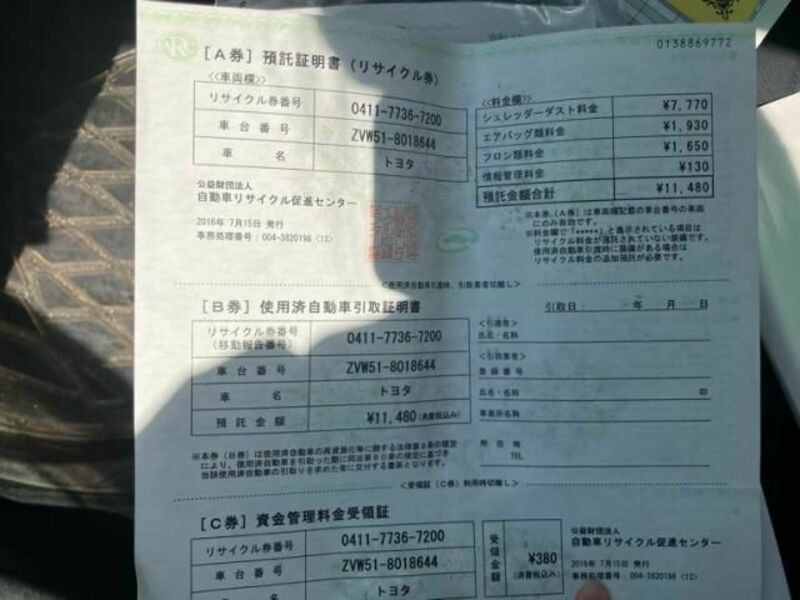 0138869772
[A券] 預託証明書 (リサイクル券)
<<車両欄>>
リサイクル券番号 0411-7736-7200
車台番号 ZVW51-8018644
車名 トヨタ
<<料金欄>>
シュレッダーダスト料金 ¥7,770
エアバッグ類料金 ¥1,930
フロン類料金 ¥1,650
情報管理料金 ¥130
預託金額合計 ¥11,480
公益財団法人
自動車リサイクル促進センター
2016年 7月15日 発行
事務処理番号:004-3820198 <1S>
※本券(A券)は車両欄記載の車台番号の車両
にのみ有効です。
※料金欄で「*****」と表示されている項目は
リサイクル料金が預託されていない装備です。
使用済自動車引渡時に装備がある場合は
リサイクル料金の追加預託が必要です。
<使用済自動車引渡時、引取業者切離し>
[B券] 使用済自動車引取証明書
引取日: 年 月 日
リサイクル券番号
(移動報告番号) 0411-7736-7200
車台番号 ZVW51-8018644
車名 トヨタ
預託金額 ¥11,480(消費税込み)
<引渡者>
氏名・名称
<引取業者>
登録番号
氏名・名称 印
事業所名称
所在地
TEL
※本券(B券)は使用済自動車の再資源化等に関する法律第9条の規定
により、使用済自動車を引取った際に同法第80条の規定に基づき
当該使用済自動車の引取りを求めた者に交付する書面となります。
<受領証(C券)利用時切離し>
[C券] 資金管理料金受領証
リサイクル券番号 0411-7736-7200
車台番号 ZVW51-8018644
車名 トヨタ
受領金額 ¥380
(消費税込み)
公益財団法人
自動車リサイクル促進センター
2016年 7月15日 発行
事務処理番号:004-3820198 <1S>